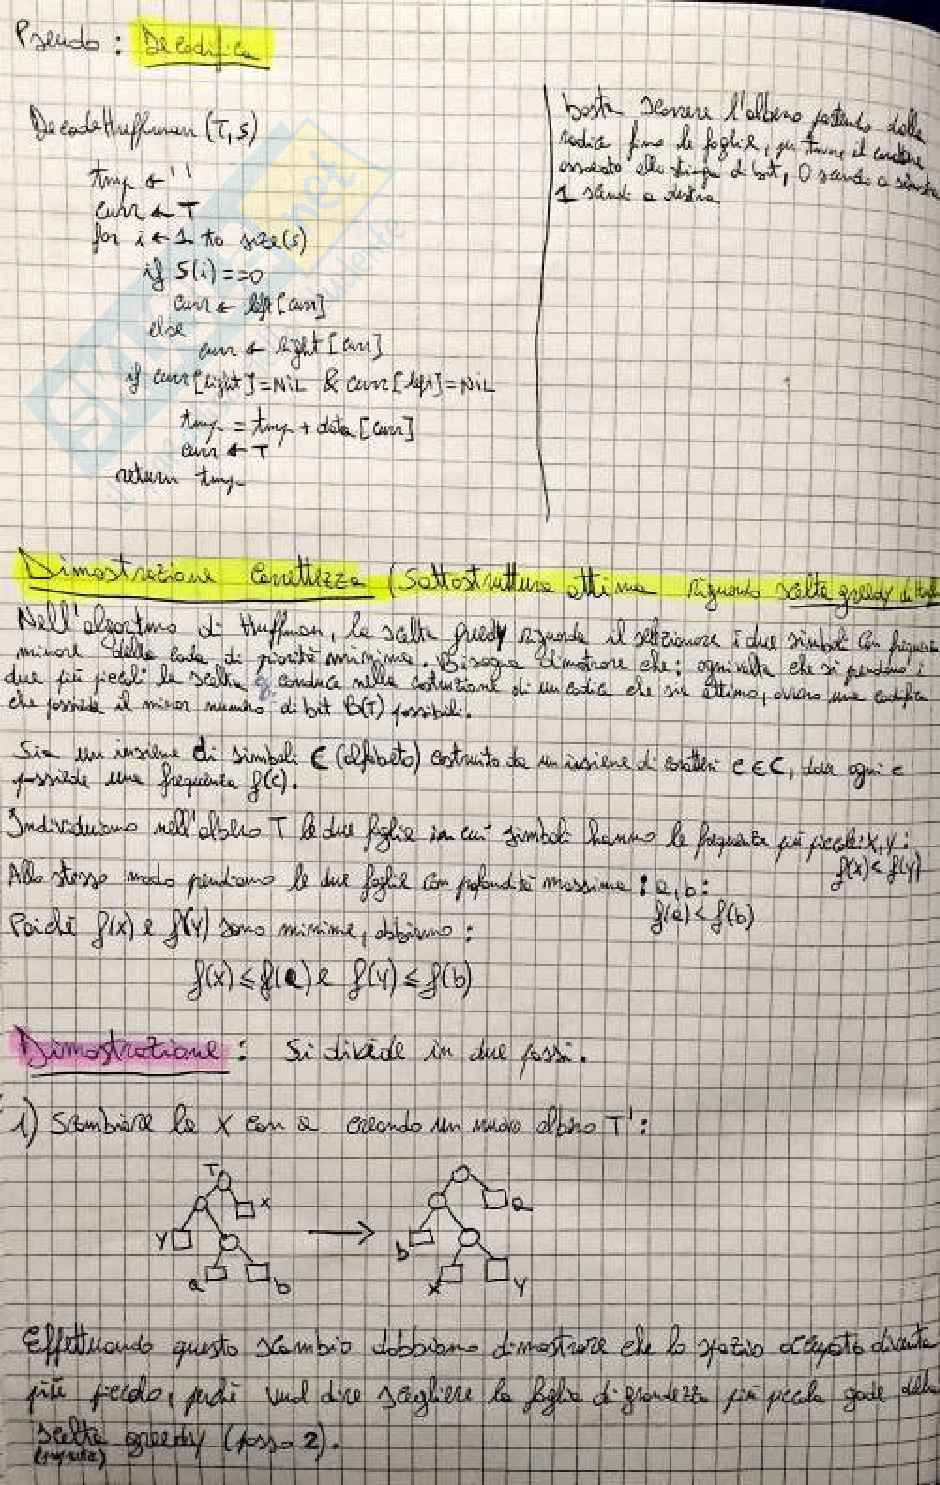 Pseudo : Decodifica
Decode Huffman (T, S)
tmp ← ' '
curr ← T
for i ← 1 to size(s)
if S(i) == 0
curr ← left [curr]
else
curr ← right [curr]
if curr [right] = NiL & curr [left] = NiL
tmp = tmp + data [curr]
curr ← T
return tmp
basta scorrere l'albero partendo dalla
radice fino le foglie, per trovare il carattere
associato alla stringa di bit, 0 scendi a sinistra
1 scendi a destra
Dimostrazione Correttezza (Sottostruttura ottima riguardo scelta greedy di
Nell'algoritmo di Huffman, la scelta greedy riguarda il selezionare i due simboli con frequenza
minore della coda di priorità minima. Bisogna dimostrare che: ogni volta che si prendono i
due più piccoli la scelta conduce nella costruzione di un codice che sia ottimo, ovvero una codifica
che possiede il minor numero di bit B(T) possibili.
Sia un insieme di simboli C (alfabeto) costruito da un insieme di caratteri c ∈ C, dove ogni c
possiede una frequenza f(c).
Individuiamo nell'albero T le due foglie in cui simboli hanno le frequenze più piccole: x, y :
f(x) < f(y)
Allo stesso modo prendiamo le due foglie con profondità massima : a, b :
f(a) < f(b)
Poiché f(x) e f(y) sono minime, abbiamo :
f(x) ⩽ f(a) e f(y) ⩽ f(b)
Dimostrazione : Si divide in due passi.
1) Scambiare la x con a creando un nuovo albero T' :
T
x
y
a b
a
b
x y
Effettuando questo scambio dobbiamo dimostrare che lo spazio occupato diventa
più piccolo, perché vuol dire scegliere la foglia di grandezza più piccola gode della
scelta greedy (passo 2).